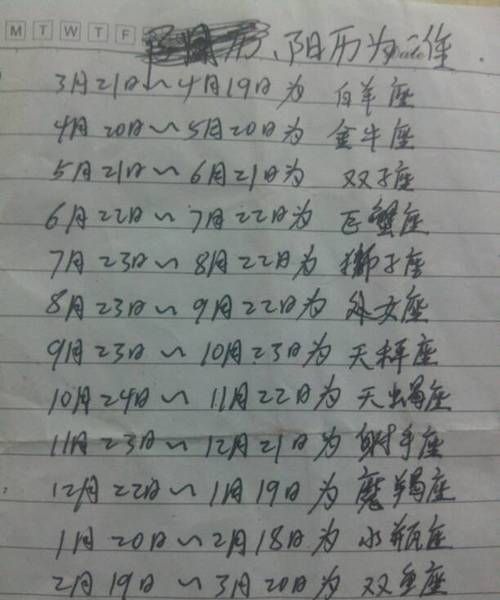 M T W T F
历、阳历为准.
3月21日～4月19日为 白羊座
4月20日～5月20日为 金牛座
5月21日～6月21日为 双子座
6月22日～7月22日为 巨蟹座
7月23日～8月22日为 狮子座
8月23日～9月22日为 处女座
9月23日～10月23日为 天秤座
10月24日～11月22日为 天蝎座
11月23日～12月21日为 射手座
12月22日～1月19日为 魔羯座
1月20日～2月18日为 水瓶座
2月19日～3月20日为 双鱼座